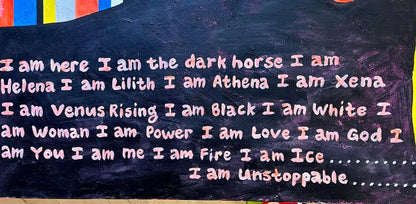 I am here I am the dark horse I am
Helena I am Lilith I am Athena I am Xena
I am Venus Rising I am Black I am White I
am Woman I am Power I am Love I am God I
am You I am me I am Fire I am Ice..........
I am Unstoppable..........